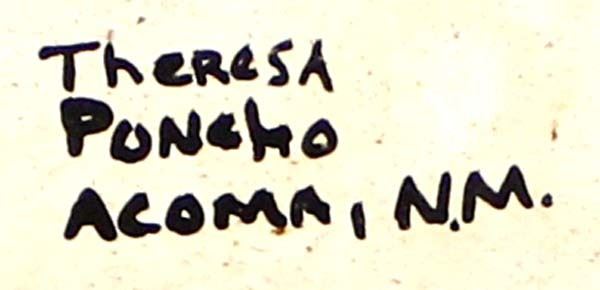 Theresa
Poncho
Acoma, N.M.